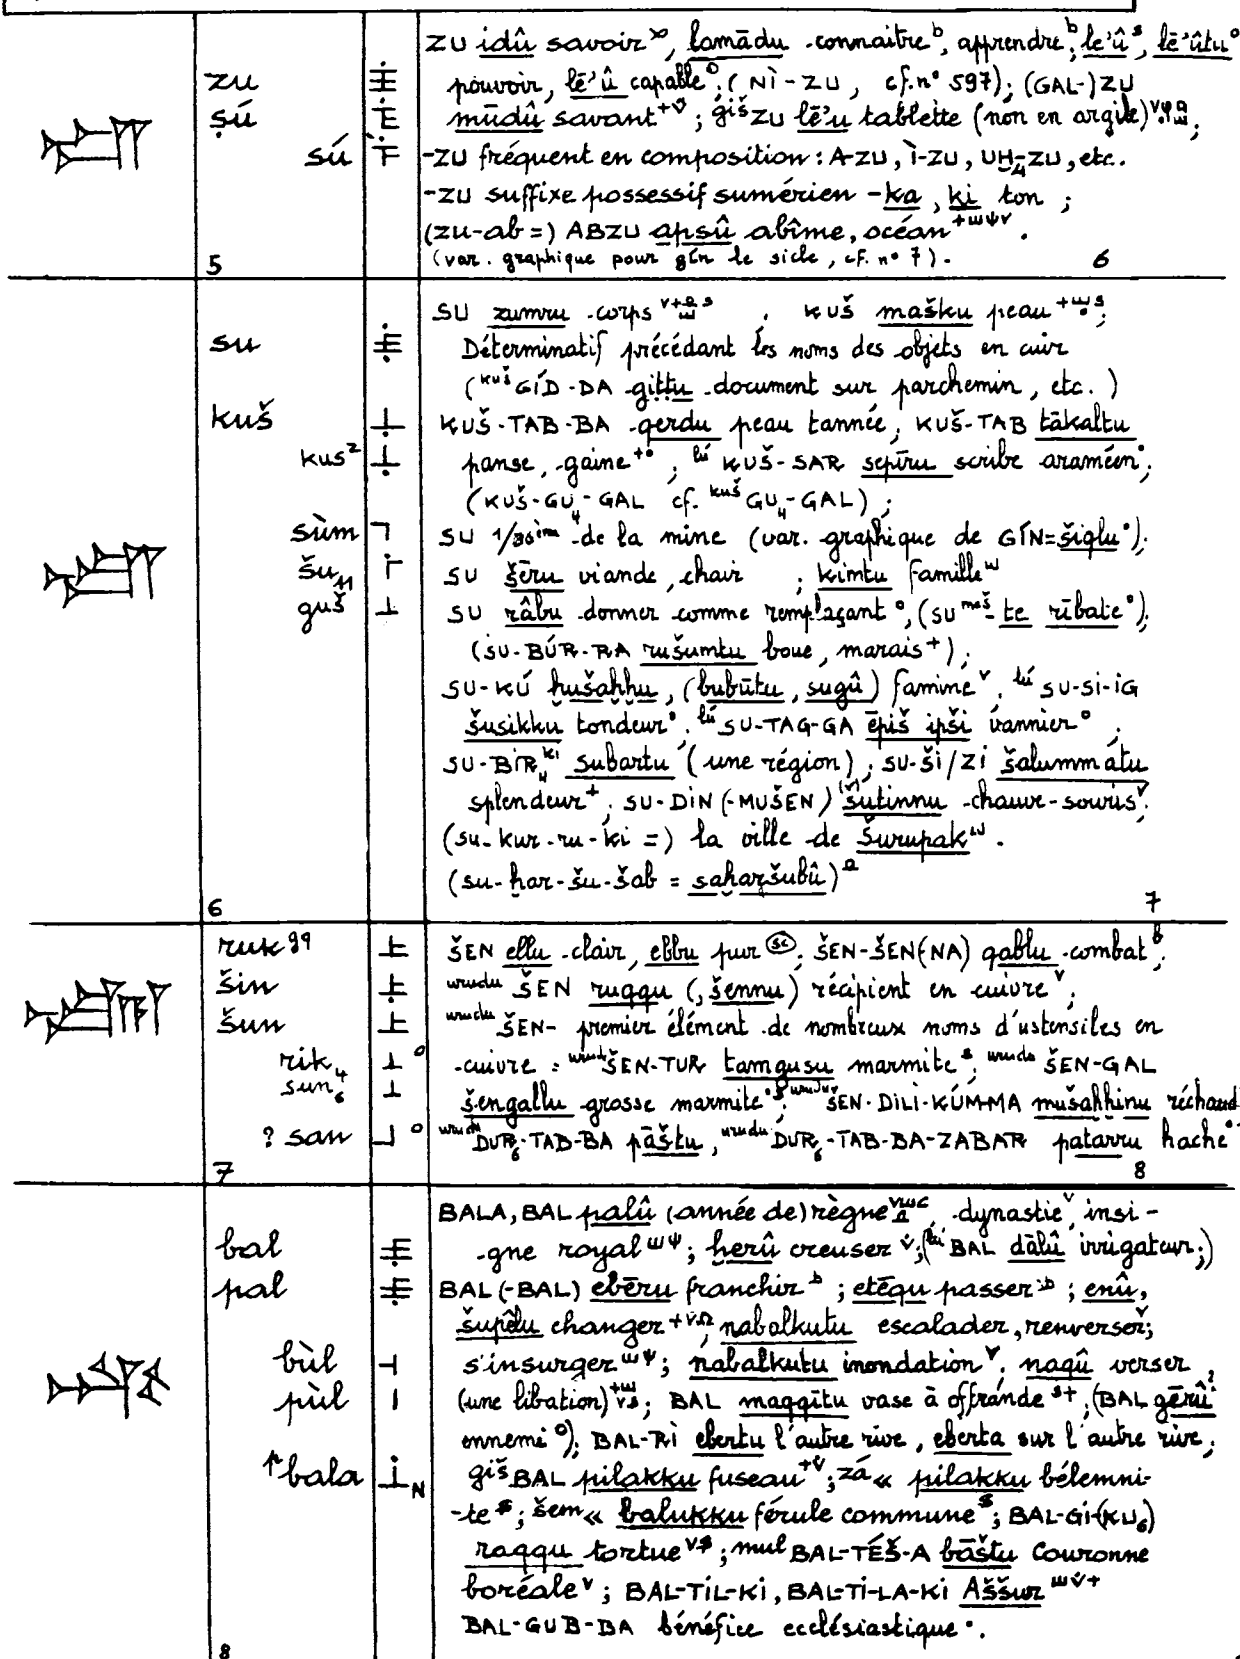 ZU idû savoir, lamādu connaitre, apprendre, le'û, lē'ûtu
zu pouvoir, lē'û capable; (NÌ-ZU, cf. n° 597); (GAL-)ZU
ṣú mūdû savant; giš ZU lē'u tablette (non en argile);
sú -ZU fréquent en composition: A-ZU, Ì-ZU, UḪ₄-ZU, etc.
-ZU suffixe possessif sumérien -ka, ki ton;
(zu-ab =) ABZU apsû abîme, océan.
(var. graphique pour gín le sicle, cf. n° 7).
5 6
SU zumru corps. KUŠ mašku peau;
su Déterminatif précédant les noms des objets en cuir
(kuš GÍD-DA giṭṭu document sur parchemin, etc.)
kuš KUŠ-TAB-BA gerdu peau tannée, KUŠ-TAB tākaltu
kus² panse, gaine; lú KUŠ-SAR sepīru scribe araméen;
(KUŠ-GU₄-GAL cf. kuš GU₄-GAL);
sùm SU 1/30ième de la mine (var. graphique de GÍN=šiqlu);
šu₁₁ SU šēru viande, chair; kimtu famille
guš SU râbu donner comme remplaçant, (SU meš-te rībate);
(SU-BÚR-RA rušumtu boue, marais);
SU-KÚ ḫušaḫḫu, (bubūtu, sugû) famine, lú SU-SI-IG
šusikku tondeur, lú SU-TAG-GA ēpiš ipši vannier;
SU-BIR₄ ki subartu (une région); SU-ŠI/ZI šalummatu
splendeur, SU-DIN (-MUŠEN) šutinnu chauve-souris;
(su-kur-ru-ki =) la ville de Šurupak.
(su-ḫar-šu-šab = saḫaršubû)
6 7
ruk 99 ŠEN ellu clair, ebbu pur, ŠEN-ŠEN(NA) qablu combat;
šin urudu ŠEN ruqqu (, šennu) récipient en cuivre;
šun urudu ŠEN- premier élément de nombreux noms d'ustensiles en
rik₄ cuivre: urudu ŠEN-TUR tamgusu marmite, urudu ŠEN-GAL
sun₆ šengallu grosse marmite, urudu ŠEN-DILI-KÚM-MA mušaḫḫinu réchaud
? san urudu DUR₆-TAB-BA pāštu, urudu DUR₆-TAB-BA-ZABAR patarru hache
7 8
BALA, BAL palû (année de) règne, dynastie, insi-
bal gne royal; ḫerû creuser; (lú BAL dālû irrigateur;)
pal BAL(-BAL) ebēru franchir; etēqu passer; enû,
šupêlu changer, nabalkutu escalader, renverser;
bùl s'insurger; nabalkutu inondation, naqû verser
pùl (une libation); BAL maqqītu vase à offrande; (BAL gērû
ennemi); BAL-RI ebertu l'autre rive, eberta sur l'autre rive;
bala giš BAL pilakku fuseau; zá « pilakku bélemni-
te; šem « balukku férule commune; BAL-GI-(KU₆)
raqqu tortue; mul BAL-TÉŠ-A bāštu Couronne
boréale; BAL-TIL-KI, BAL-TI-LA-KI Aššur
BAL-GUB-BA bénéfice ecclésiastique.
8